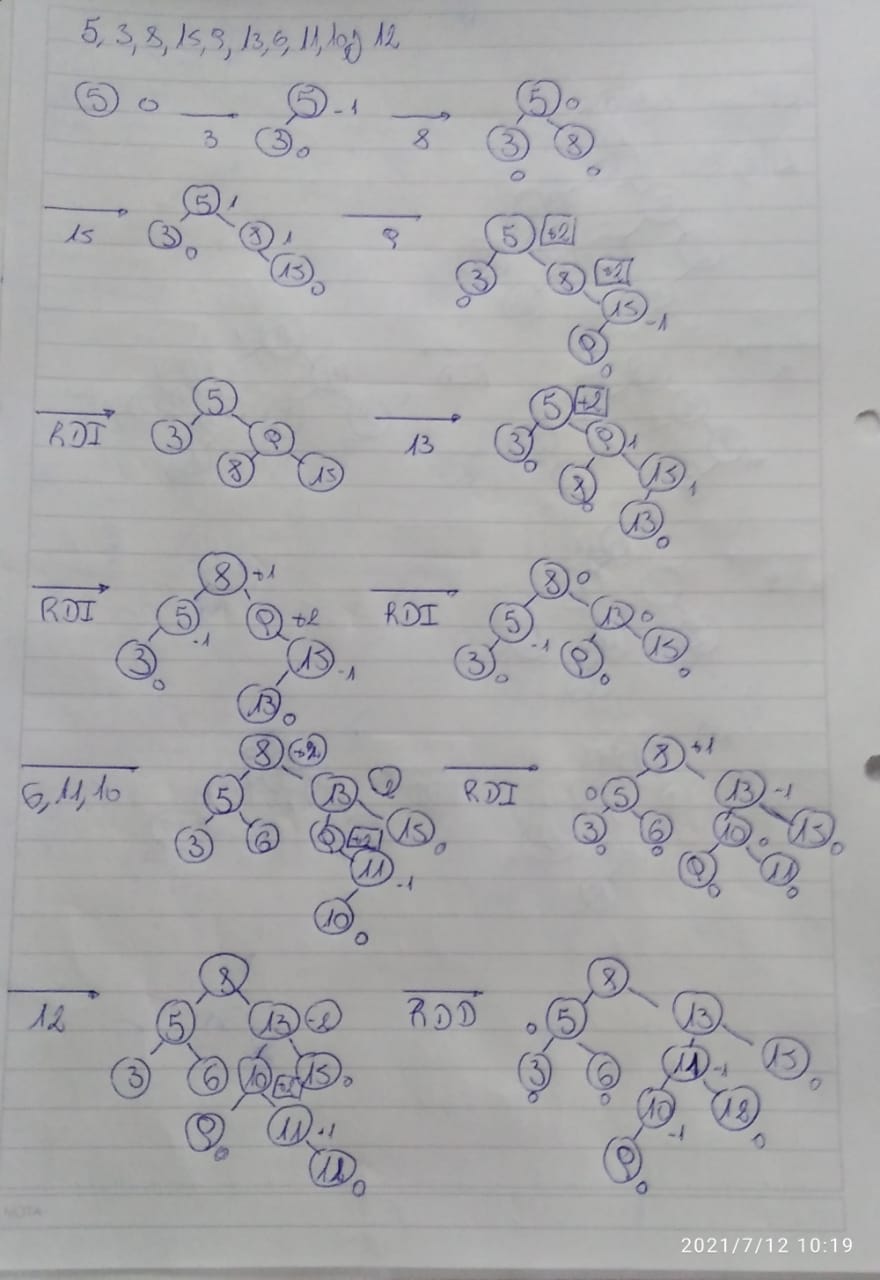 5, 3, 8, 15, 9, 13, 6, 11, 10 e 12
5 0 → 3 5 -1 3 0 → 8 5 0 3 0 8 0
→ 15 5 1 3 0 8 1 15 0 → 9 5 +2 3 0 8 +2 15 -1 9 0
→ RDI 5 3 9 8 15 → 13 5 +2 3 0 9 1 8 0 15 1 13 0
→ RDI 8 +1 5 -1 9 +2 3 0 15 -1 13 0 → RDI 8 0 5 -1 13 0 3 0 9 0 15 0
6, 11, 10 8 +2 5 13 2 3 6 9 +2 15 0 11 -1 10 0 → RDI 8 +1 0 5 13 -1 3 0 6 0 10 0 15 0 9 0 11 0
→ 12 8 5 13 -2 3 6 10 +2 15 0 9 0 11 +1 12 0 → RDD 8 0 5 13 3 0 6 0 11 -1 15 0 10 -1 12 0 9 0
NOTA
2021/7/12 10:19